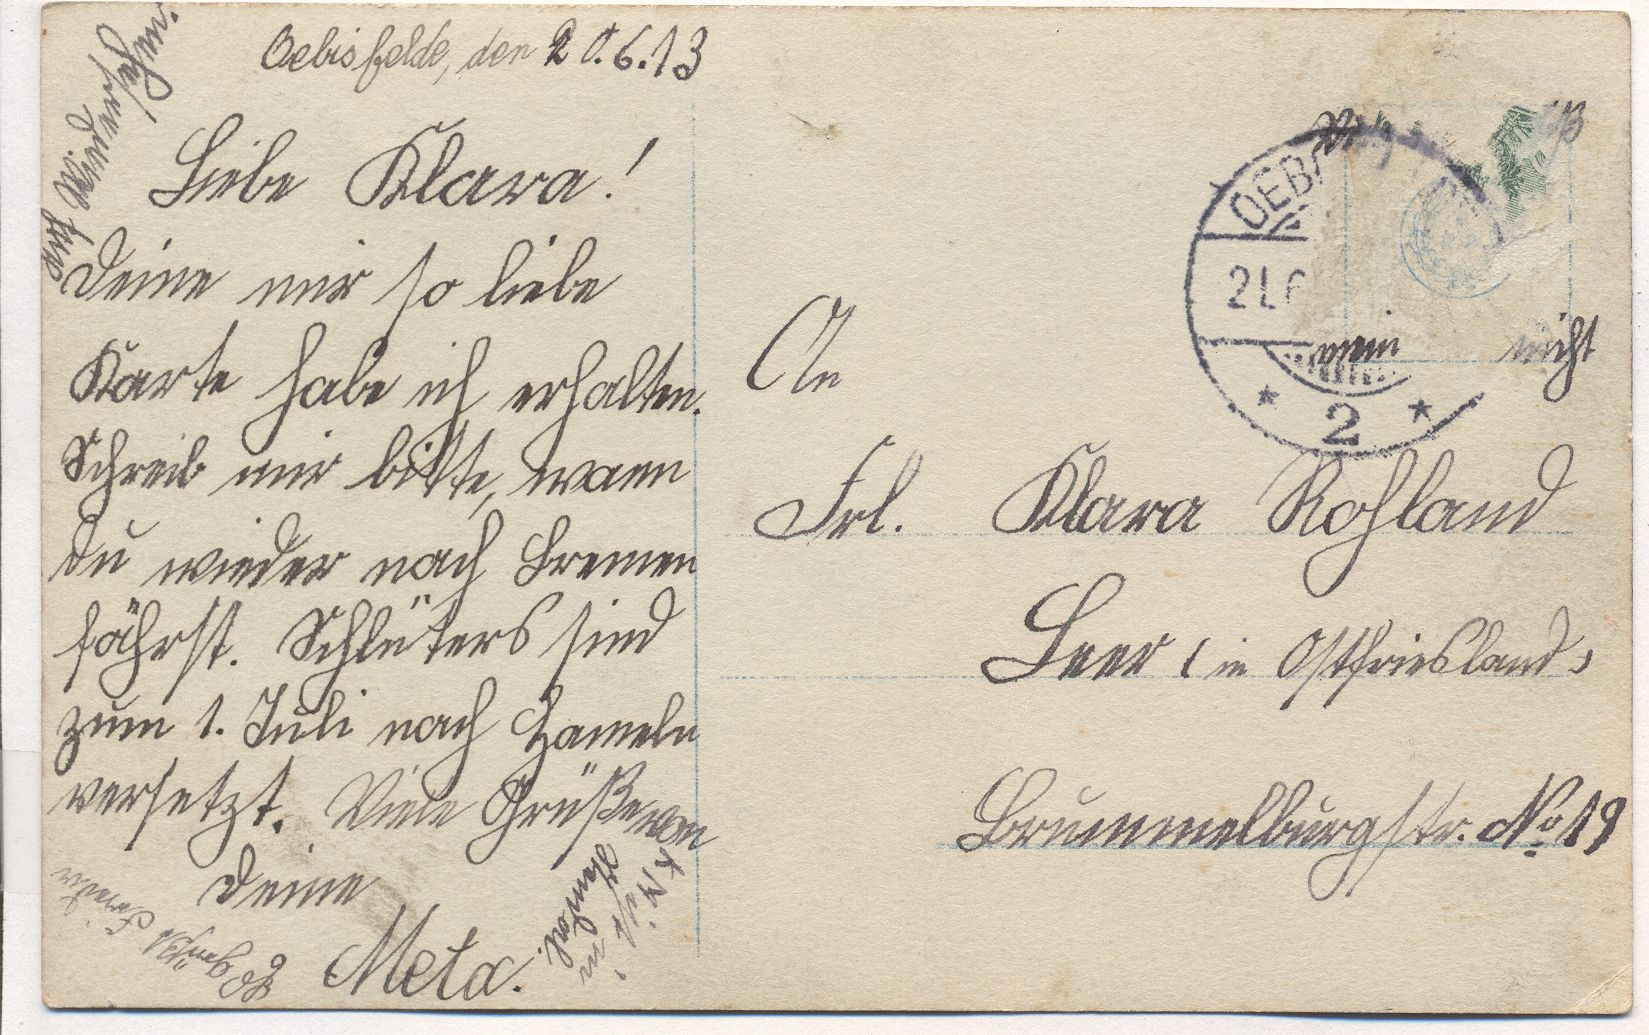 Oebisfelde, den 20.6.13
Liebe Klara!
Deine mir so liebe
Karte habe ich erhalten.
Schreib mir bitte, wann
du wieder nach Bremen
fährst. Schlüters sind
zum 1. Juli nach Hameln
versetzt. Viele Grüße von
deine
Meta.
OEB
21.6
* 2 *
mein nicht
An
Frl. Klara Rohland
Leer (in Ostfriesland)
Brummelburgstr. No 19